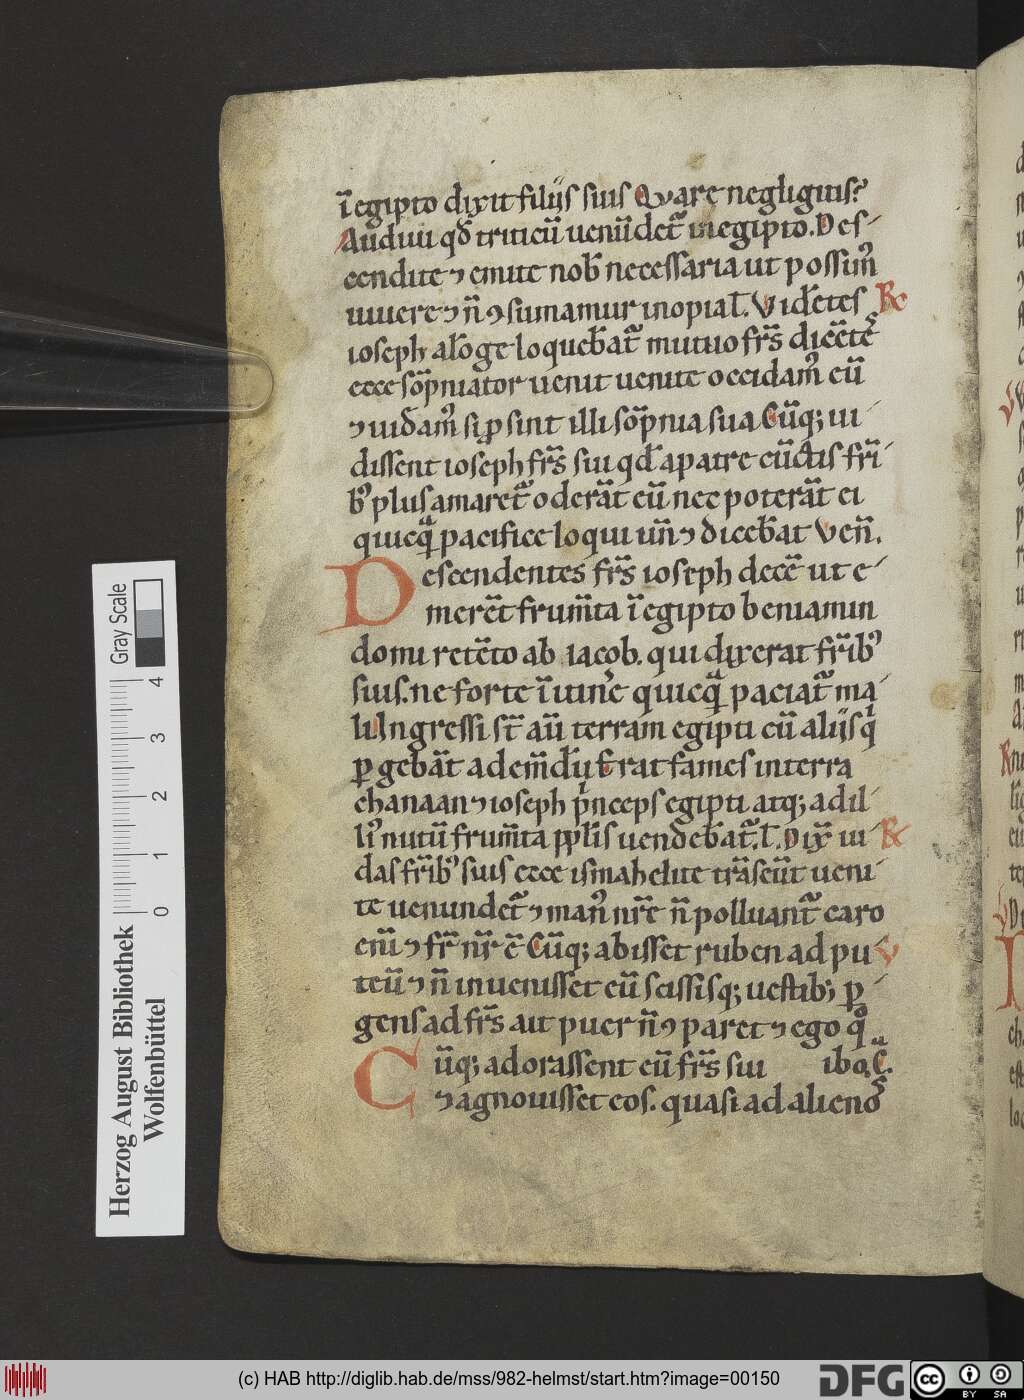 ī egipto dixit filiis suis Quare negligitis?
Audiui qđ triticū uenūdet᷑ in egipto. Des-
cendite ⁊ emite nob̄ necessaria ut possim᷒
uiuere ⁊ n̄ ꝯsumamur inopia ł. Vidētes R͛
ioseph a lōge loquebāt᷑ mutuo fr̄s dicētes
ecce sōpniator uenit uenite occidam᷒ eū
⁊ uideam᷒ si ꝓsint illi sōpnia sua Cūq; ui-
dissent ioseph fr̄s sui qđ a patre cūctis fr̄i-
b᷒ plus amaret᷑ oderāt eū nec poterāt ei
quicq̄ pacifice loqui un̄ ⁊ dicebāt Ven̄.
Descendentes fr̄s ioseph decē ut e-
merēt frum̄ta ī egipto beniamin
domi retēto ab iacob. qui dixerat fr̄ib᷒
suis. ne forte ī itin̄e quicq̄ paciat᷑ ma-
li Ingressi st̄ aū terram egipti cū aliis qͥ
ꝑgebāt ad em̄dū Erat fames in terra
chanaan ⁊ ioseph pͥnceps egipti atq; ad il-
li᷒ nutū frum̄ta ppl̄is uendebāt᷑. ł. Dix̄ iu- R͛
das fr̄ib᷒ suis ecce ismahelite trāseūt ueni-
te uenundet᷑ ⁊ man᷒ nr̄e n̄ polluant᷑ caro
eni᷒ ⁊ fr̄ nr̄ ē Cūq; abisset ruben ad pu- V
teū ⁊ n̄ inuenisset eū scissisq; uestib; ꝑ-
gens ad fr̄s ait puer n̄ ꝯparet ⁊ ego qͦ
Cūq; adorassent eū fr̄s sui ibo, C̄.
⁊ agnouisset eos. quasi ad alienos
Herzog August Bibliothek
Wolfenbüttel
0 1 2 3 4
Gray Scale
(c) HAB http://diglib.hab.de/mss/982-helmst/start.htm?image=00150
DFG
cc BY SA